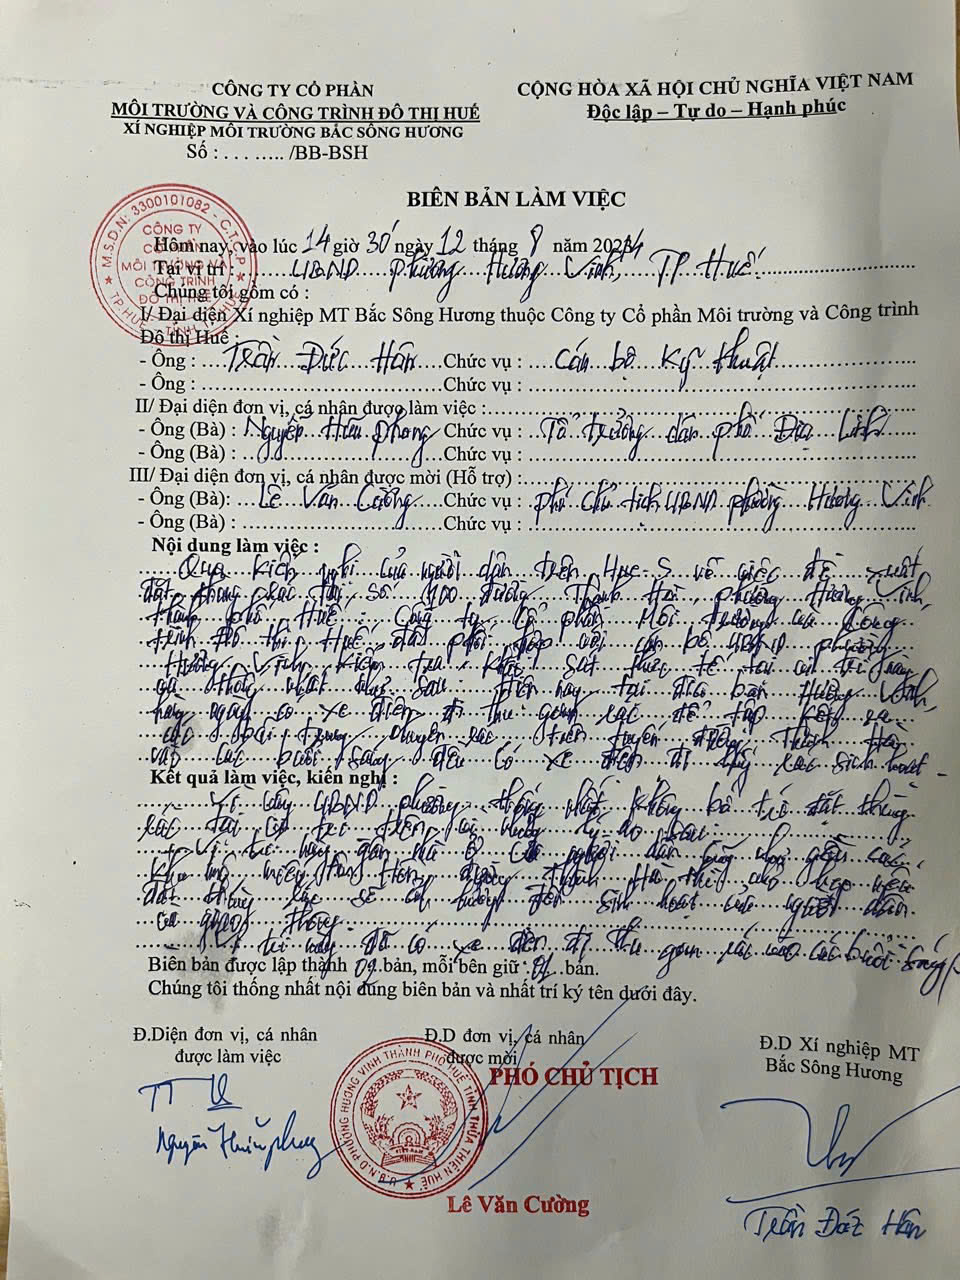 CÔNG TY CỔ PHẦN
MÔI TRƯỜNG VÀ CÔNG TRÌNH ĐÔ THỊ HUẾ
XÍ NGHIỆP MÔI TRƯỜNG BẮC SÔNG HƯƠNG
Số : . . . ….. /BB-BSH
CỘNG HÒA XÃ HỘI CHỦ NGHĨA VIỆT NAM
Độc lập – Tự do – Hạnh phúc
BIÊN BẢN LÀM VIỆC
M.S.D.N: 3300101082 - C.T.C.P
CÔNG TY
CỔ PHẦN
MÔI TRƯỜNG VÀ
CÔNG TRÌNH
ĐÔ THỊ HUẾ
Hôm nay, vào lúc 14 giờ 30 ngày 12 tháng 8 năm 2024
Tại vị trí : UBND phường Hương Vinh, TP Huế
Chúng tôi gồm có :
I/ Đại diện Xí nghiệp MT Bắc Sông Hương thuộc Công ty Cổ phần Môi trường và Công trình
Đô thị Huế :
- Ông : Trần Đức Hân Chức vụ : Cán bộ Kỹ thuật
- Ông : Chức vụ :
II/ Đại diện đơn vị, cá nhân được làm việc :
- Ông (Bà) : Nguyễn Hữu Phong Chức vụ : Tổ trưởng dân phố Địa Linh
- Ông (Bà) : Chức vụ :
III/ Đại diện đơn vị, cá nhân được mời (Hỗ trợ) :
- Ông (Bà): Lê Văn Cường Chức vụ : Phó Chủ tịch UBND phường Hương Vinh
- Ông (Bà) : Chức vụ :
Nội dung làm việc :
Qua kiến nghị của người dân trên Hue-S về việc đề xuất
đặt thùng rác tại số 400 đường Thanh Hà, phường Hương Vinh,
thành phố Huế. Công ty Cổ phần Môi trường và Công
trình Đô thị Huế đã phối hợp với cán bộ UBND phường
Hương Vinh kiểm tra, khảo sát thực tế tại vị trí này
và thống nhất như sau: Hiện nay tại địa bàn Hương Vinh,
hàng ngày có xe điện đi thu gom rác để tập kết ra
các trạm trung chuyển rác, trên tuyến đường Thanh Hà
vào các buổi sáng đều có xe điện đi lấy rác sinh hoạt
Kết quả làm việc, kiến nghị :
Vì vậy UBND phường thống nhất không bố trí đặt thùng
rác tại vị trí trên, lý do sau:
+ Vị trí này gần nhà ở của người dân cũng như gần các
đường Thanh Hà hẹp nên
đặt thùng rác sẽ ảnh hưởng đến sinh hoạt của người dân
và giao thông
+ Vị trí này đã có xe điện đi thu gom rác vào các buổi sáng
Biên bản được lập thành 02 bản, mỗi bên giữ 01 bản.
Chúng tôi thống nhất nội dung biên bản và nhất trí ký tên dưới đây.
Đ.Diện đơn vị, cá nhân
được làm việc
Đ.D đơn vị, cá nhân
được mời
Đ.D Xí nghiệp MT
Bắc Sông Hương
PHÓ CHỦ TỊCH
U.B.N.D PHƯỜNG HƯƠNG VINH THÀNH PHỐ HUẾ TỈNH THỪA THIÊN HUẾ
Nguyễn Hữu Phong
Lê Văn Cường
Trần Đức Hân